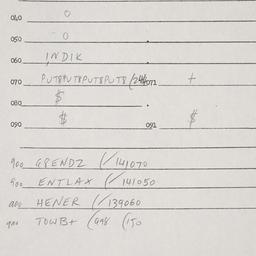 040 0
050 0
060 INDIK
070 071 +
080 $
090 $ 091 $
900 GRENDZ (/141070
900 ENTLAX (/141050
900 HENER (/139060
900 TOWB+ (